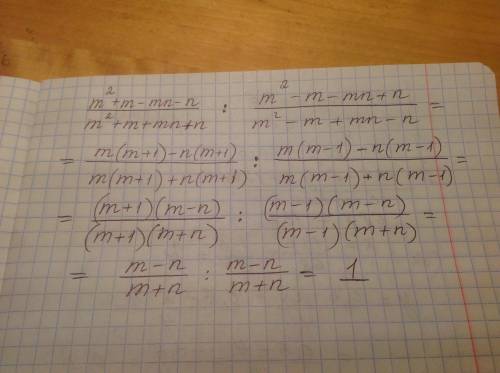 m²+m-mn-n / m²+m+mn+n : m²-m-mn+n / m²-m+mn-n =
= m(m+1)-n(m+1) / m(m+1)+n(m+1) : m(m-1)-n(m-1) / m(m-1)+n(m-1) =
= (m+1)(m-n) / (m+1)(m+n) : (m-1)(m-n) / (m-1)(m+n) =
= m-n / m+n : m-n / m+n = 1